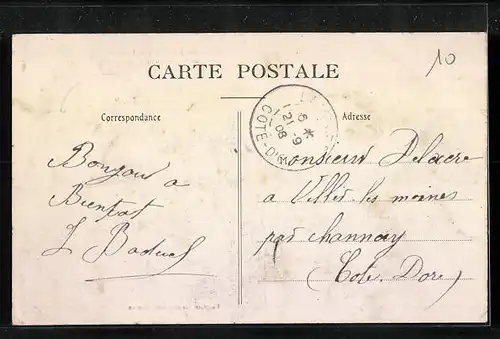 10
CARTE POSTALE
Correspondance
Adresse
5 *
21 - 9
08
COTE-D'OR
Bonjour a
Bientot
Monsieur Delacre
a Villes les moines
par Channay
(Cote Dore)